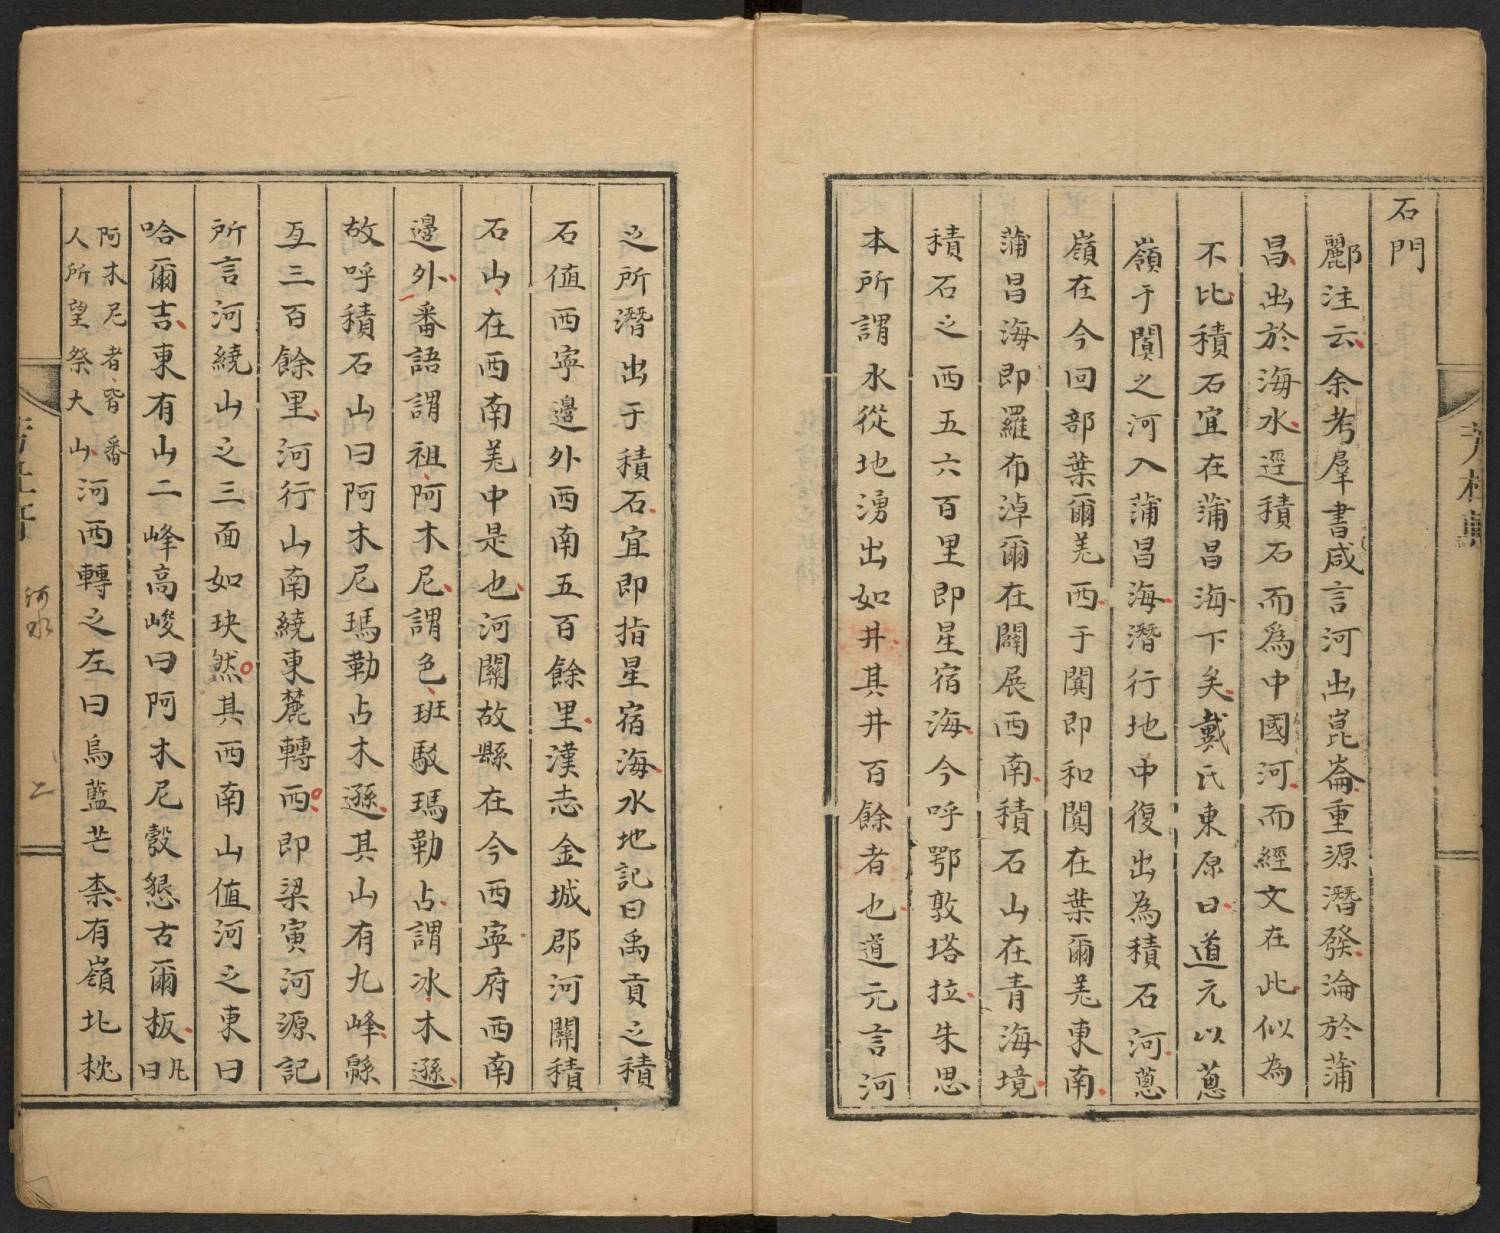 石門
酈注云余考羣書咸言河出崑崙重源潛發淪於蒲
昌出於海水逕積石而為中國河而經文在此似為
不比積石宜在蒲昌海下矣戴氏東原曰道元以蔥
嶺于闐之河入蒲昌海潛行地中復出為積石河蔥
嶺在今回部葉爾羌西于闐即和闐在葉爾羌東南
蒲昌海即羅布淖爾在闢展西南積石山在青海境
積石之西五六百里即星宿海今呼鄂敦塔拉朱思
本所謂水從地湧出如井其井百餘者也道元言河
之所潛出于積石宜即指星宿海水地記曰禹貢之積
石值西寧邊外西南五百餘里漢志金城郡河關積
石山在西南羌中是也河關故縣在今西寧府西南
邊外番語謂祖阿木尼謂色班駁瑪勒占謂冰木遜
故呼積石山曰阿木尼瑪勒占木遜其山有九峰緜
亙三百餘里河行山南繞東麓轉西即梁寅河源記
所言河繞山之三面如玦然其西南山值河之東曰
哈爾吉東有山二峰高峻曰阿木尼䝩懇古爾板凡曰
阿木尼者皆番
人所望祭大山河西轉之左曰烏藍芒柰有嶺北枕
河水
二